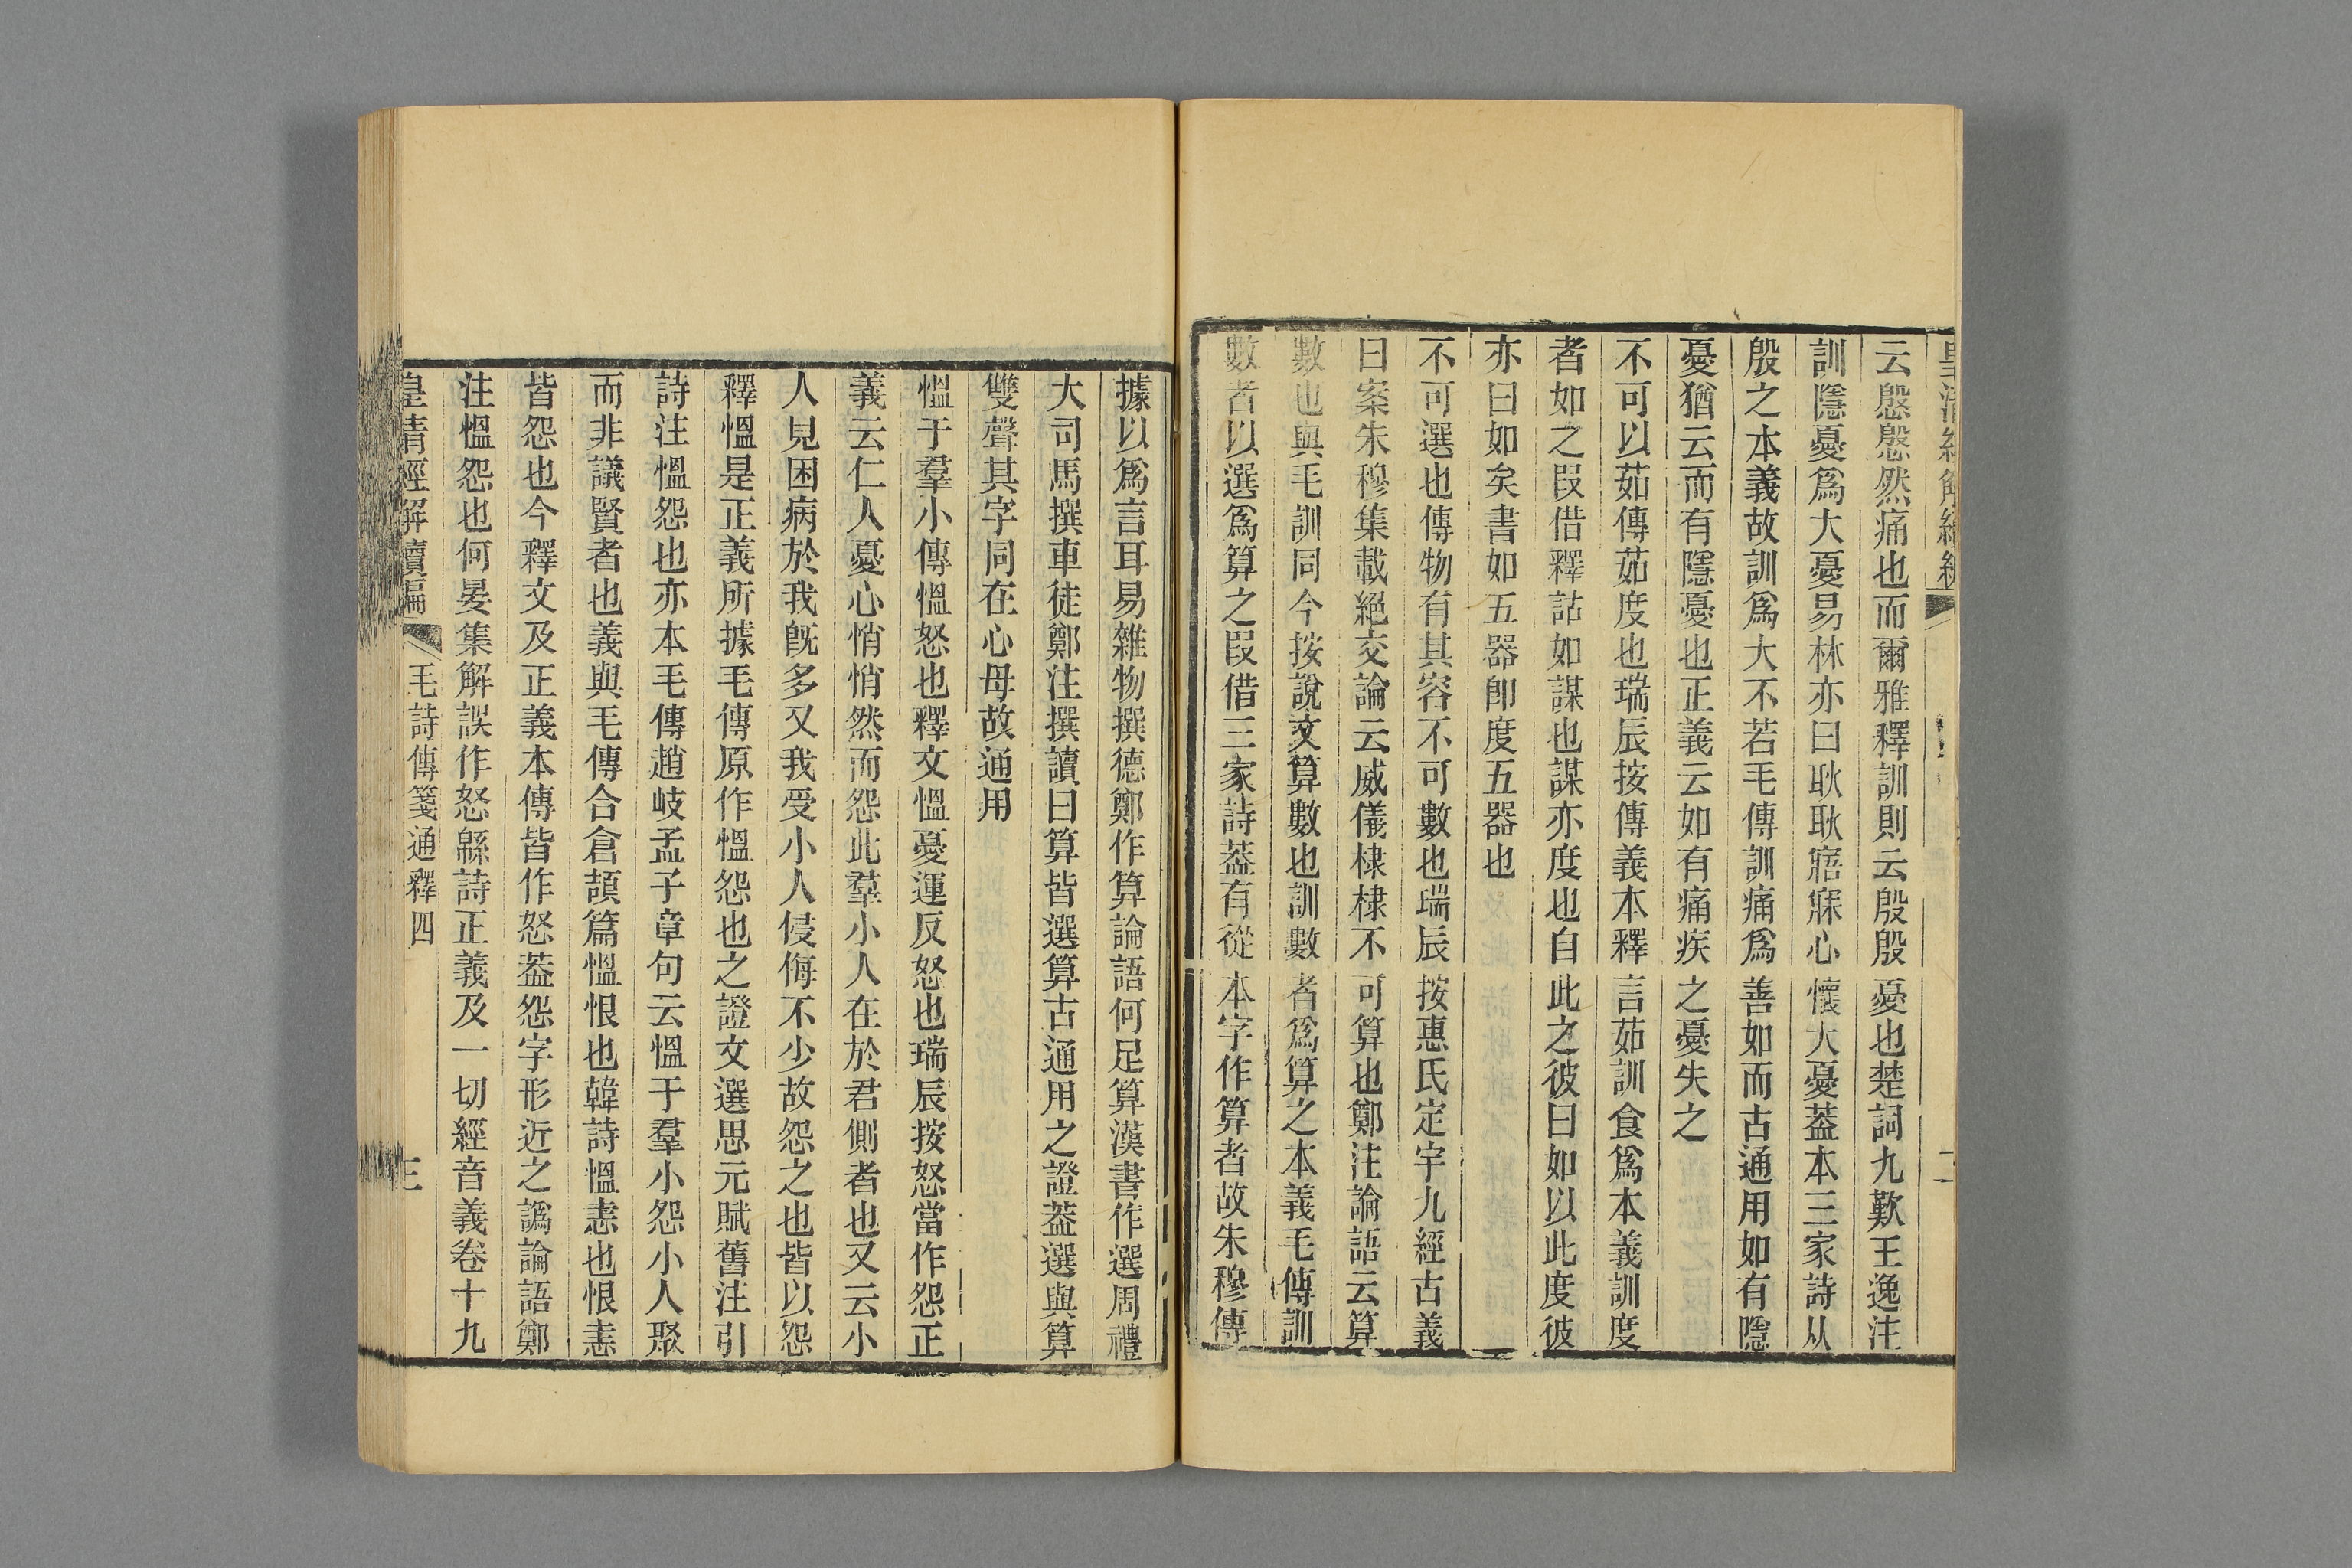 云慇慇然痛也而爾雅釋訓則云殷殷憂也楚詞九歎王逸注
訓隱憂爲大憂易林亦曰耿耿寤寐心懷大憂葢本三家詩从
殷之本義故訓爲大不若毛傳訓痛爲善如而古通用如有隱
憂猶云而有隱憂也正義云如有痛疾之憂失之
不可以茹傳茹度也瑞辰按傳義本釋言茹訓食爲本義訓度
者如之叚借釋詁如謀也謀亦度也自此之彼曰如以此度彼
亦曰如矣書如五器卽度五器也
不可選也傳物有其容不可數也瑞辰按惠氏定宇九經古義
曰案朱穆集載絕交論云威儀棣棣不可算也鄭注論語云算
數也與毛訓同今按說文算數也訓數者爲算之本義毛傳訓
數者以選爲算之叚借三家詩葢有從本字作算者故朱穆傳
據以爲言耳易雜物撰德鄭作算論語何足算漢書作選周禮
大司馬撰車徒鄭注撰讀曰算皆選算古通用之證葢選與算
雙聲其字同在心母故通用
慍于羣小傳慍怒也釋文慍憂運反怒也瑞辰按怒當作怨正
義云仁人憂心悄悄然而怨此羣小人在於君側者也又云小
人見困病於我旣多又我受小人侵侮不少故怨之也皆以怨
釋慍是正義所據毛傳原作慍怨也之證文選思元賦舊注引
詩注慍怨也亦本毛傳趙岐孟子章句云慍于羣小怨小人聚
而非議賢者也義與毛傳合倉頡篇慍恨也韓詩慍恚也恨恚
皆怨也今釋文及正義本傳皆作怒葢怨字形近之譌論語鄭
注慍怨也何晏集解誤作怒緜詩正義及一切經音義卷十九
皇清經解續編 毛詩傳箋通釋四 三